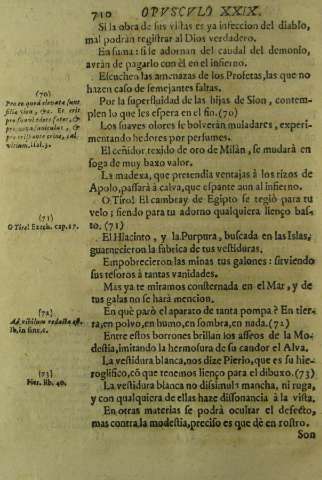 710 OPUSCULO XXIX.
Si la obra de sus villas es ya infeccion del diablo,
mal podràn registrar al Dios verdadero.
En suma: si se adornan del caudal del demonio,
avràn de pagarlo con èl en el infierno.
Escuchen las amenazas de los Profetas, las que no
hazen caso de semejantes faltas.
Por la superfluidad de las hijas de Sion, contem-
plen lo que les espera en el fin. (70)
Los suaves olores se bolveràn muladares, experi-
mentando hedores por perfumes.
El ceñidor texido de oro de Milàn, se mudarà en
soga de muy baxo valor.
La madexa, que pretendia ventajas à los rizos de
Apolo, passarà à calva, que espante aun al infierno.
O Tiro! El cambray de Egipto se tegiò para tu
velo; siendo para tu adorno qualquiera lienço bas-
to. (71)
El Hiacinto, y la Purpura, buscada en las Islas,
guarnecieron la fabrica de tus vestiduras.
Empobrecieron las minas tus galones: sirviendo
sus tesoros à tantas vanidades.
Mas ya te miramos consternada en el Mar, y de
tus galas no se harà mencion.
En què parò el aparato de tanta pompa? En tier-
ra, en polvo, en humo, en sombra, en nada. (72)
Entre estos borrones brillan los asseos de la Mo-
destia, imitando la hermosura de su candor el Alva.
La vestidura blanca, nos dize Pierio, que es su hie-
roglifico, cõ que tenemos lienço para el dibuxo. (73)
La vestidura blanca no dissimula mancha, ni ruga,
y con qualquiera de ellas haze dissonancia à la vista.
En otras materias se podrà ocultar el defecto,
mas contra la modestia, preciso es que dè en rostro.
Son
(70)
Pro eo quod elevatæ sunt
filiæ Sion, &c. Et erit
pro suavi odore fœtor, &
pro zona funiculus, &
pro crispante crine, cal-
vitium. Isai. 3.
(71)
O Tiro! Ezech. cap. 27.
(72)
Ad nihilum redacta est.
Ib. in fine c.
(73)
Pier. lib. 40.